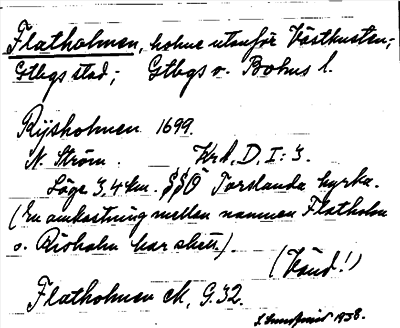 Flatholmen, holme utanför Västkusten;
Gtbgs stad; Gtbgs o. Bohus l.
Rysholmen 1699.
N. Ström. Krt. D. I: 3.
Läge 3,4 km. SSÖ Torslanda kyrka.
(En omkastning mellan namnen Flatholm
o. Risholm har skett.)
(Vänd!)
Flatholmen M, G. 32.
1938.